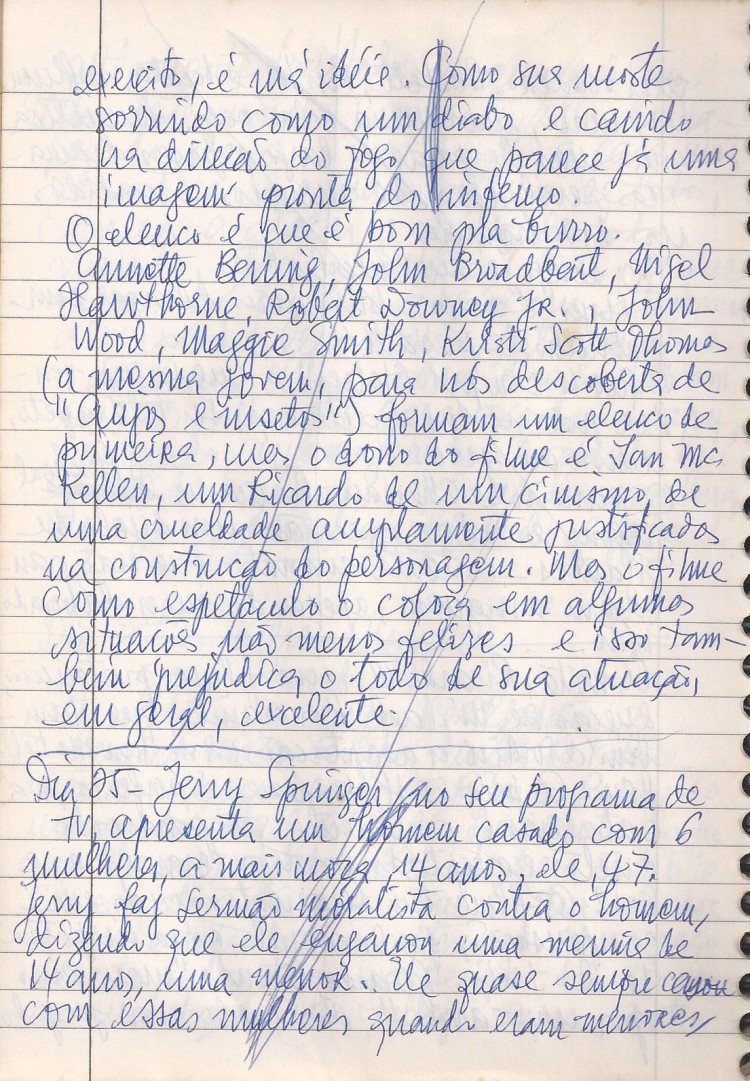 exército, é má idéia. Como sua morte
sorrindo como um diabo e caindo
na direção do fogo que parece já uma
imagem pronta do inferno.
O elenco é que é bom pra burro.
Annette Bening, John Broadbent, Nigel
Hawthorne, Robert Downey Jr., John
Wood, Maggie Smith, Kristi Scott Thomas
(a mesma jovem, para nós descoberta de
"Anjos e insetos") formam um elenco de
primeira, mas o dono do filme é Ian Mc
Kellen, um Ricardo de um cinismo, de
uma crueldade amplamente justificados
na construção do personagem. Mas o filme
como espetáculo o coloca em algumas
situações não menos felizes e isso tam-
bém prejudica o todo de sua atuação,
em geral, excelente.
Dia 25 - Jerry Springer, no seu programa de
tv, apresenta um homem casado com 6
mulheres, a mais moça, 14 anos, ele, 47.
Jerry faz sermão moralista contra o homem,
dizendo que ele enganou uma menina de
14 anos, uma menor. Ele quase sempre casou
com essas mulheres quando eram menores,